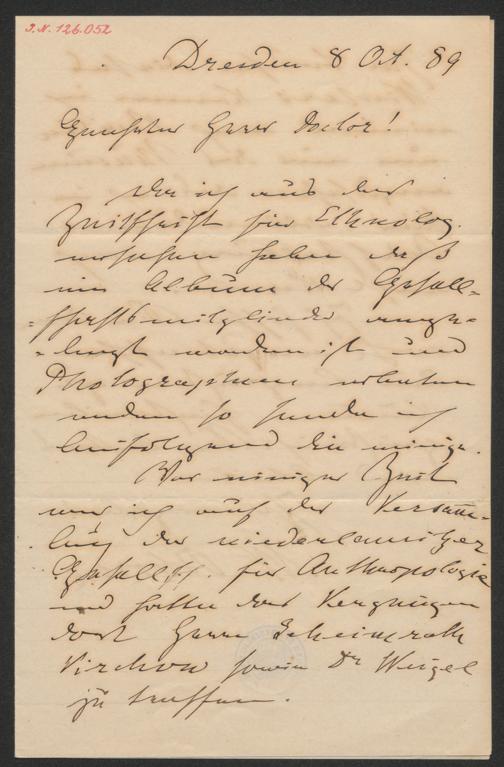 J.N. 126.052
Dresden 8 Oct. 89
Geehrter Herr Doctor!
Da ich aus der
Zeitschrift für Ethnolog.
ersehen habe daß
ein Album der Gesell-
-schaftsmitglieder ange-
-legt worden ist und
Photographien erbeten
werden so sende ich
beifolgend die meinige.
Vor einiger Zeit
war ich auf der Versam̅-
lung der niederlausitzer
Gesellsch. für Anthropologie
und hatte das Vergnügen
dort Herrn Geheimrath
Virchow sowie Dr Weigel
zu treffen.